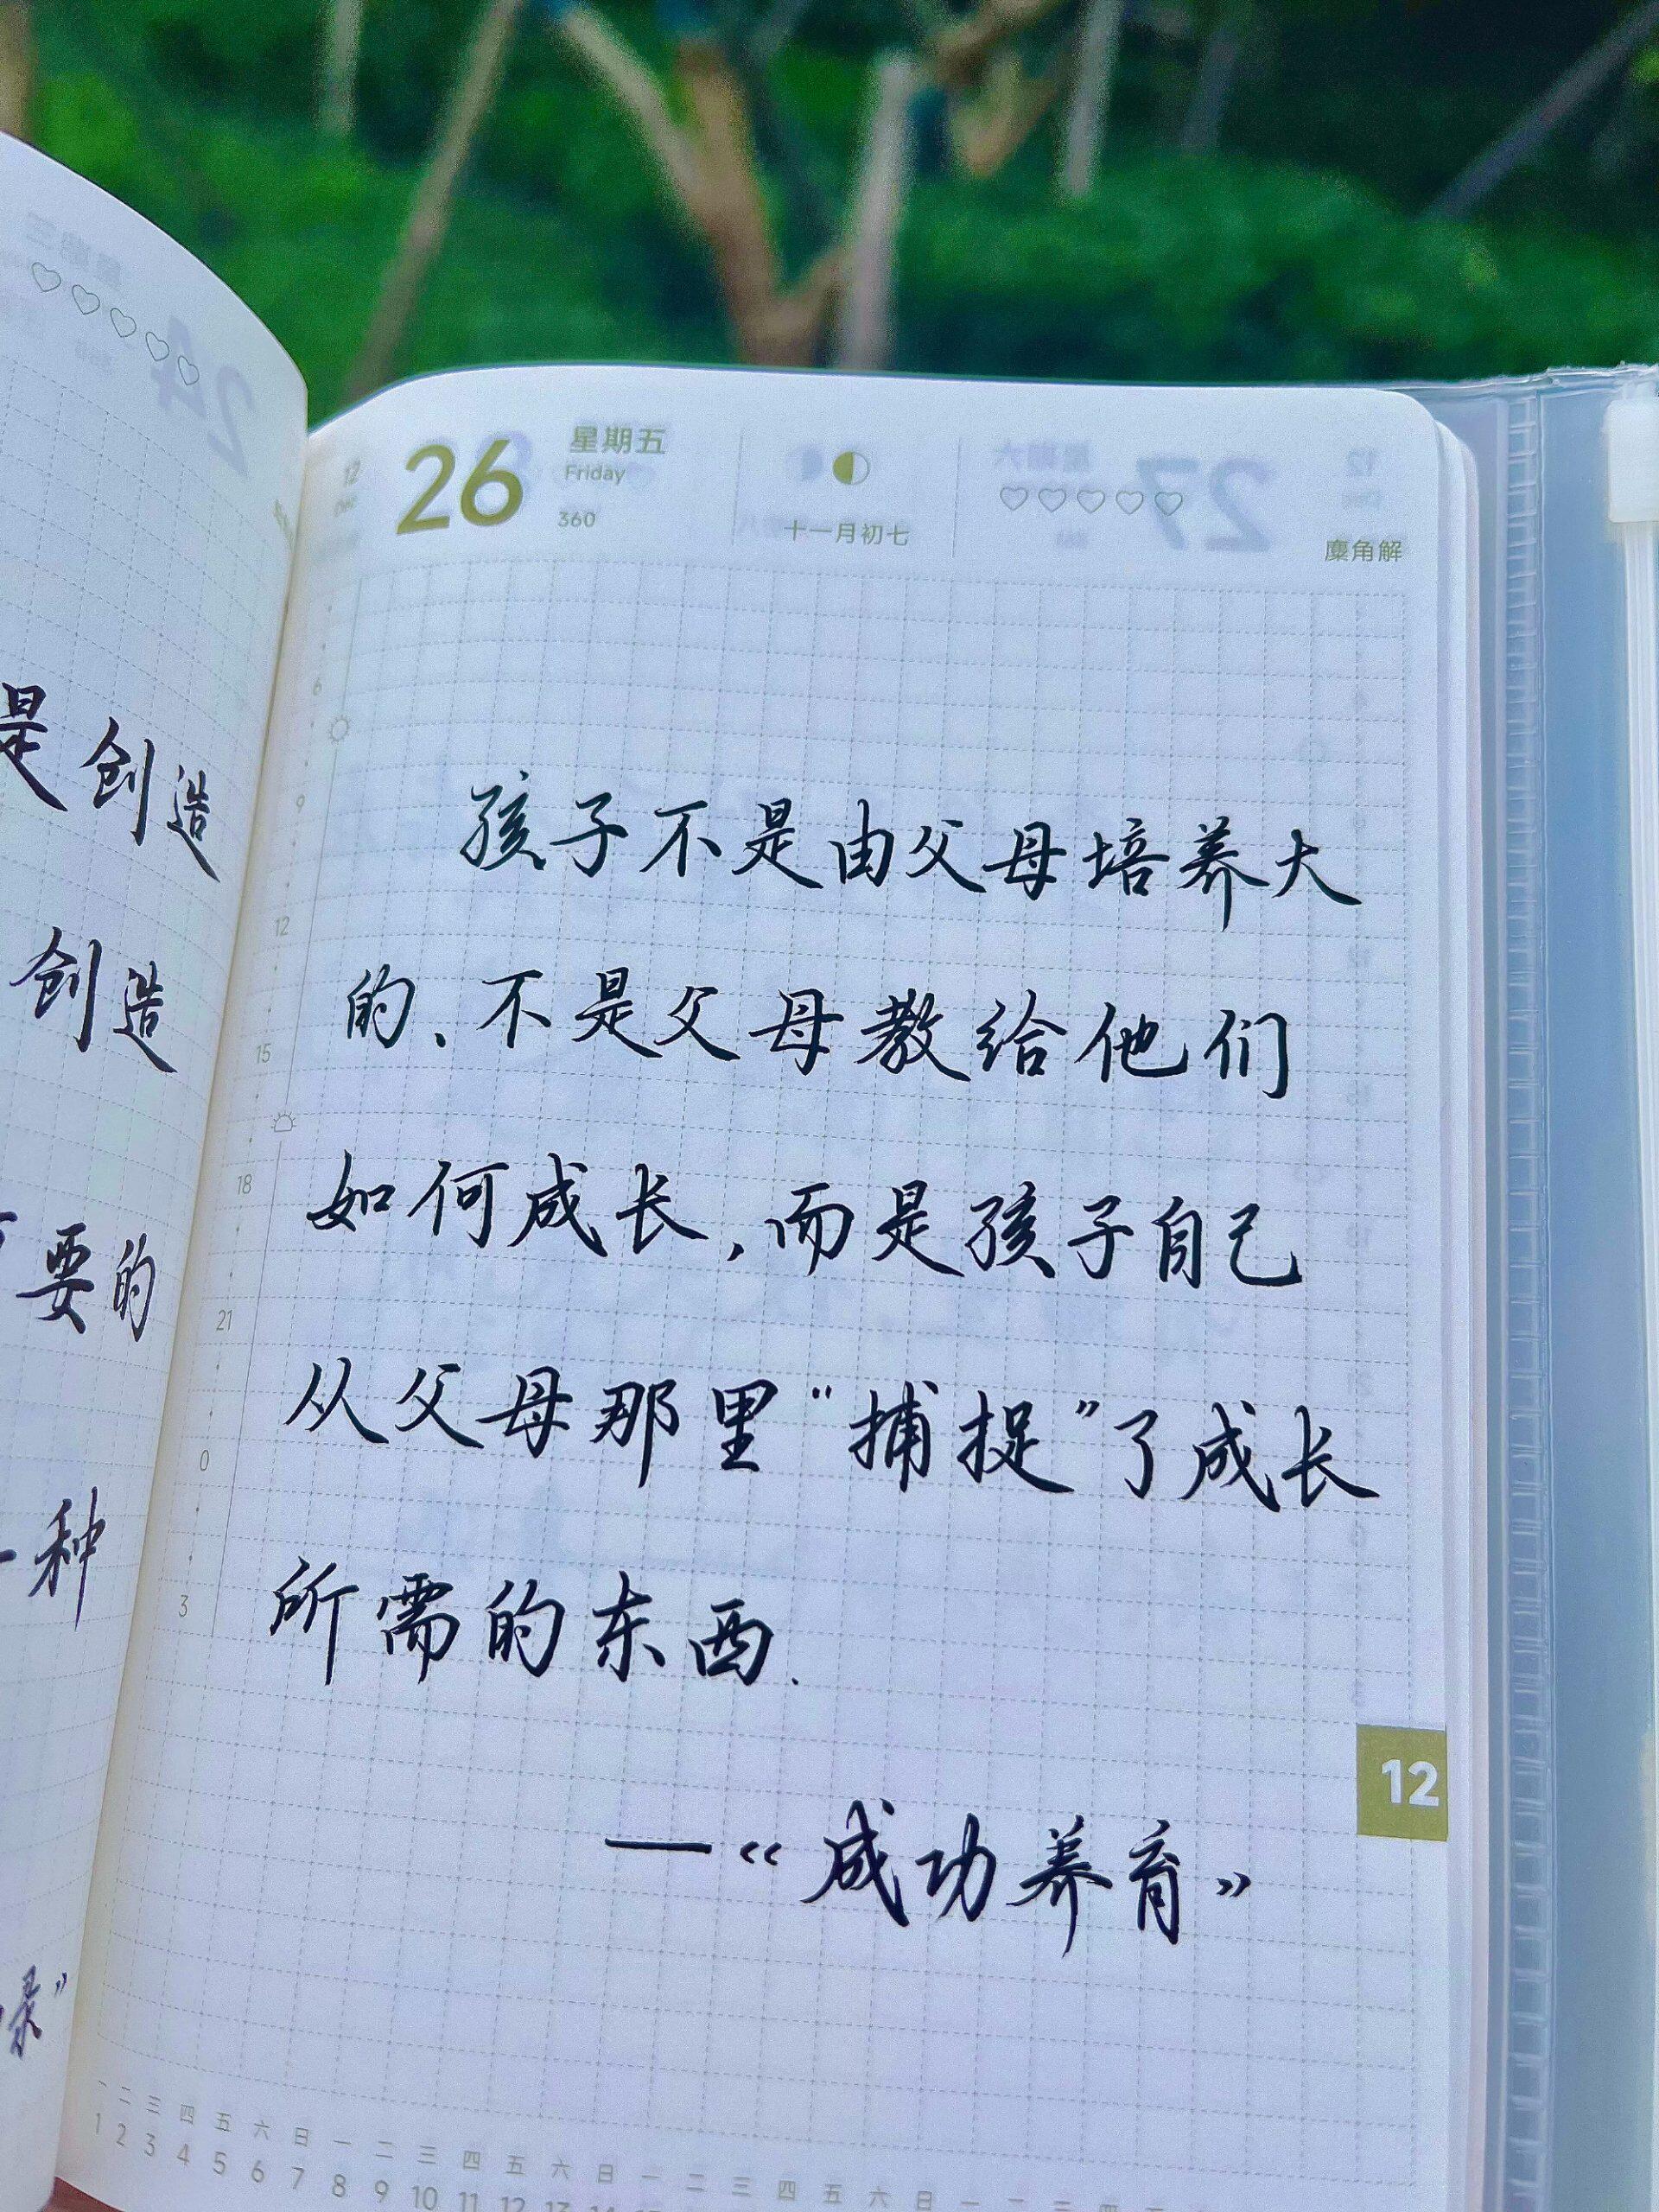 是创造
创造
要的
一种
录》
12
Dec
26
星期五
Friday
360
十一月初七
麋角解
6
9
12
15
18
21
0
3
孩子不是由父母培养大
的、不是父母教给他们
如何成长,而是孩子自己
从父母那里“捕捉”了成长
所需的东西.
—《成功养育》
12
一 二 三 四 五 六 日 一 二 三 四 五 六 日 一 二 三 四 五 六 日
1 2 3 4 5 6 7 8 9 10 11 12 13